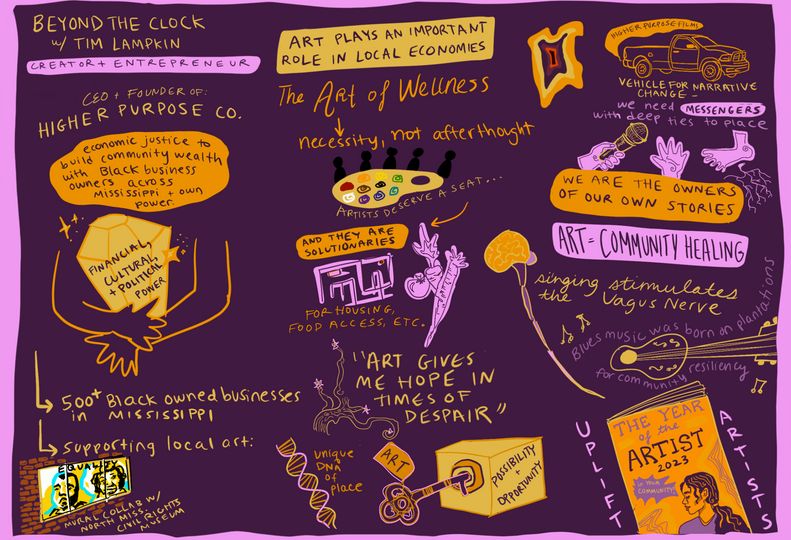 BEYOND THE CLOCK
w/ TIM LAMPKIN
CREATOR + ENTREPRENEUR
CEO + FOUNDER OF:
HIGHER PURPOSE CO.
economic justice to
build community wealth
with Black business
owners across
Mississippi + own
power.
FINANCIAL,
CULTURAL,
+ POLITICAL
POWER
500+ Black owned businesses
in MISSISSIPPI
supporting local art:
EQUALITY
MURAL COLLAB W/
NORTH MISS.
CIVIL RIGHTS
MUSEUM
ART PLAYS AN IMPORTANT
ROLE IN LOCAL ECONOMIES
The Art of Wellness
necessity, not afterthought
ARTISTS DESERVE A SEAT...
AND THEY ARE
SOLUTIONARIES
FOR HOUSING,
FOOD ACCESS, ETC.
"ART GIVES
ME HOPE IN
TIMES OF
DESPAIR"
unique
DNA
of
place
ART
POSSIBILITY
+
OPPORTUNITY
HIGHER PURPOSE FILMS
VEHICLE FOR NARRATIVE
CHANGE -
we need MESSENGERS
with deep ties to place
WE ARE THE OWNERS
OF OUR OWN STORIES
ART = COMMUNITY HEALING
singing stimulates
the Vagus Nerve
Blues music was born on plantations
for community resiliency
UPLIFT
THE YEAR
of the
ARTIST
2023
in YOUR
COMMUNITY!
ARTISTS